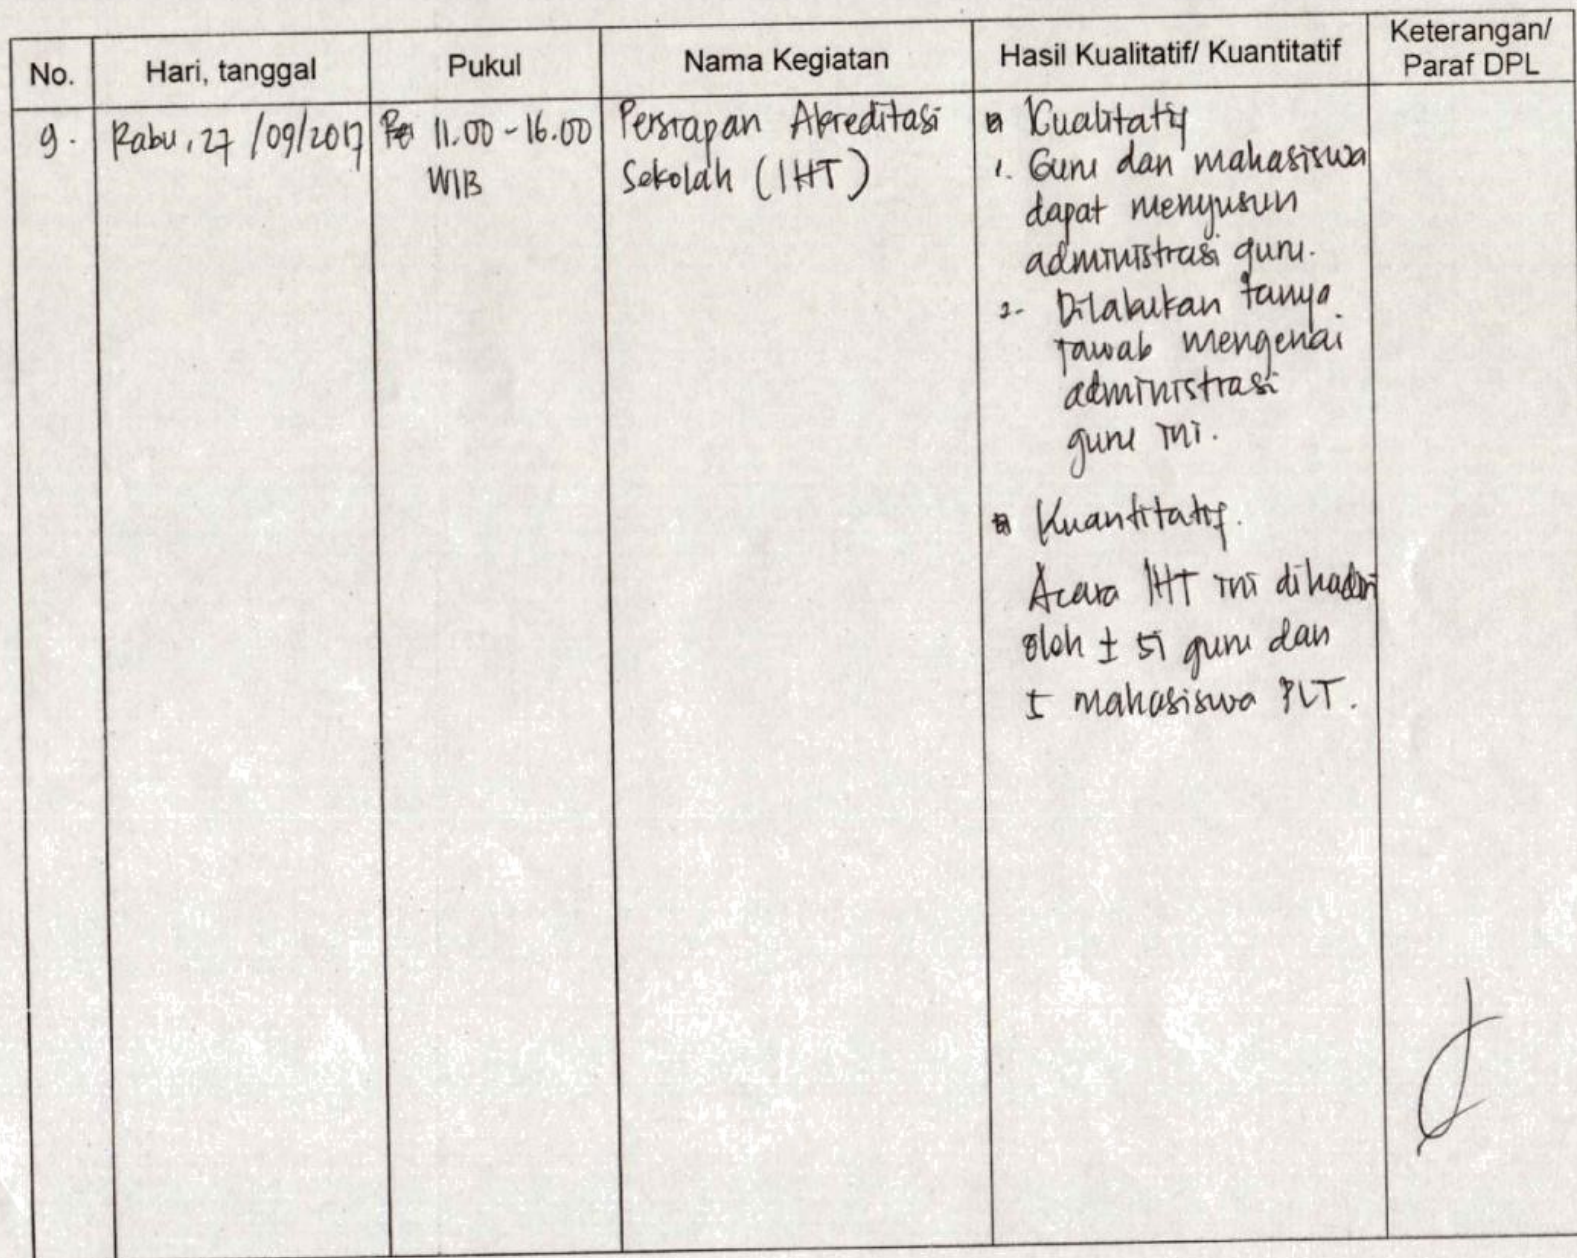 No. Hari, tanggal Pukul Nama Kegiatan Hasil Kualitatif/ Kuantitatif Keterangan/
Paraf DPL
9. Rabu, 27 /09/2017 11.00 - 16.00
WIB
Persiapan Akreditasi
Sekolah (IHT)
Kualitatif
1. Guru dan mahasiswa
dapat menyusun
administrasi guru.
2. Dilakukan tanya
jawab mengenai
administrasi
guru ini.
Kuantitatif.
Acara IHT ini dihadiri
oleh ± 51 guru dan
mahasiswa PLT.